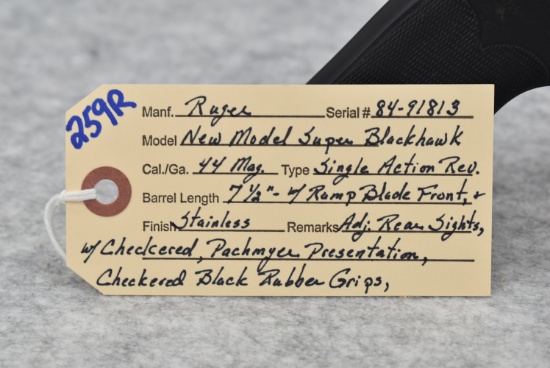 259R
Manf. Ruger Serial # 84-91813
Model New Model Super Blackhawk
Cal./Ga. 44 Mag. Type Single Action Rev.
Barrel Length 7 1/2" - w/ Ramp Blade Front, &
Finish Stainless Remarks Adj. Rear Sights,
w/ Checkered, Pachmyer Presentation,
Checkered Black Rubber Grips,